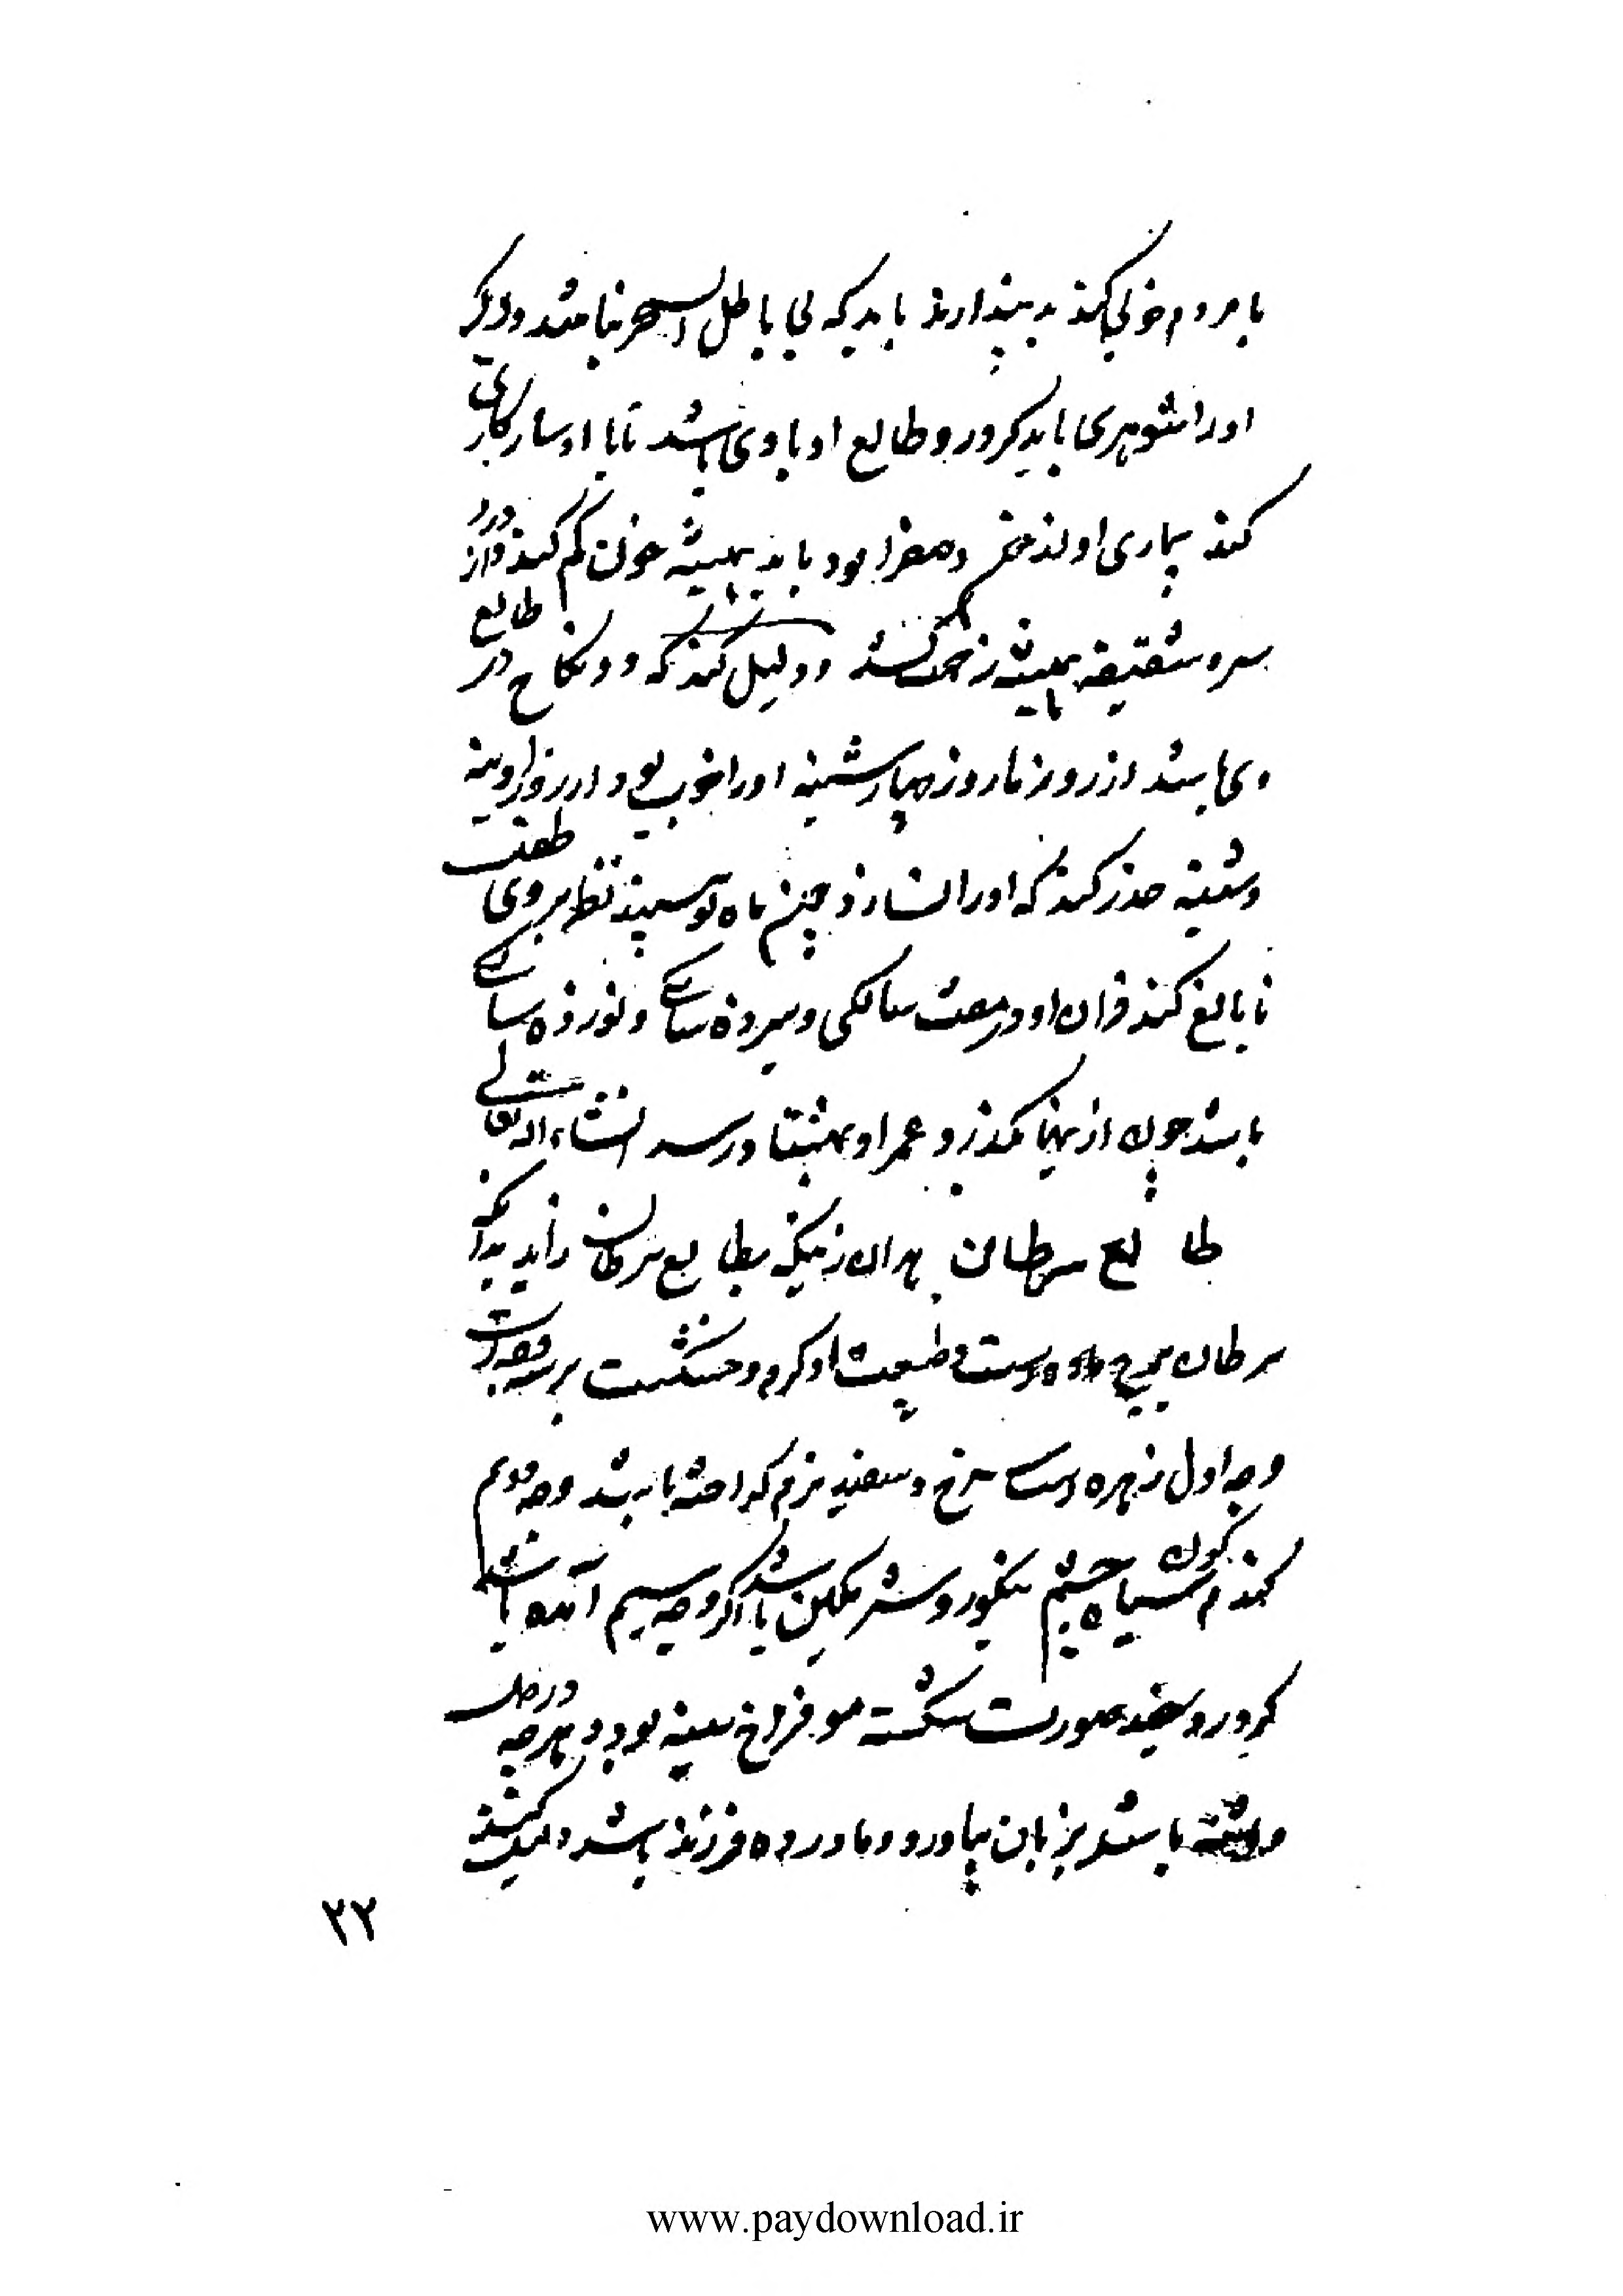 با مردم خوبی کند بد پندارند باید که بی باطل السحر نباشد و دیگر
او را شوهری باید که در و طالع او باوی باشد تا با او سازکاری
کند بیماری او از خون و صفرا بود باید همیشه خون کم کند و از درد
سر و شقیقه همیشه زحمت کشد و دلیل کند که دو نکاح در طالع
وی باشد از روزها روز چهارشنبه او را خوب بود و از روز آدینه
و شنبه حذر کند که او را نسازد چون ماه نو بیند نظر بروی طفلی
نابالغ کند قران او در هفت سالگی و سیزده سالگی و نوزده سالگی
باشد چون از اینها بگذرد عمر او بهشتاد رسد انشاء الله تعالی
طالع سرطان بدان زنیکه بطالع سرطان زاید بدانکه
سرطان برج ماده است و طبیعت او گرم و خشکست بر سه وجه است
وجه اول زهره است سرخ و سفید نرم که احشه باشد وجه دویم
گندم گون سیاه چشم نیکو رو شرمگین باشد اگر وجه سیم آمده باشد
گرد رو سفید صورت شکسته مو فراخ سینه بود و هرچه در دل
داشته باشد بزبان بیاورد و مادر ده فرزند باشد و لیکن
۲۲
www.paydownload.ir